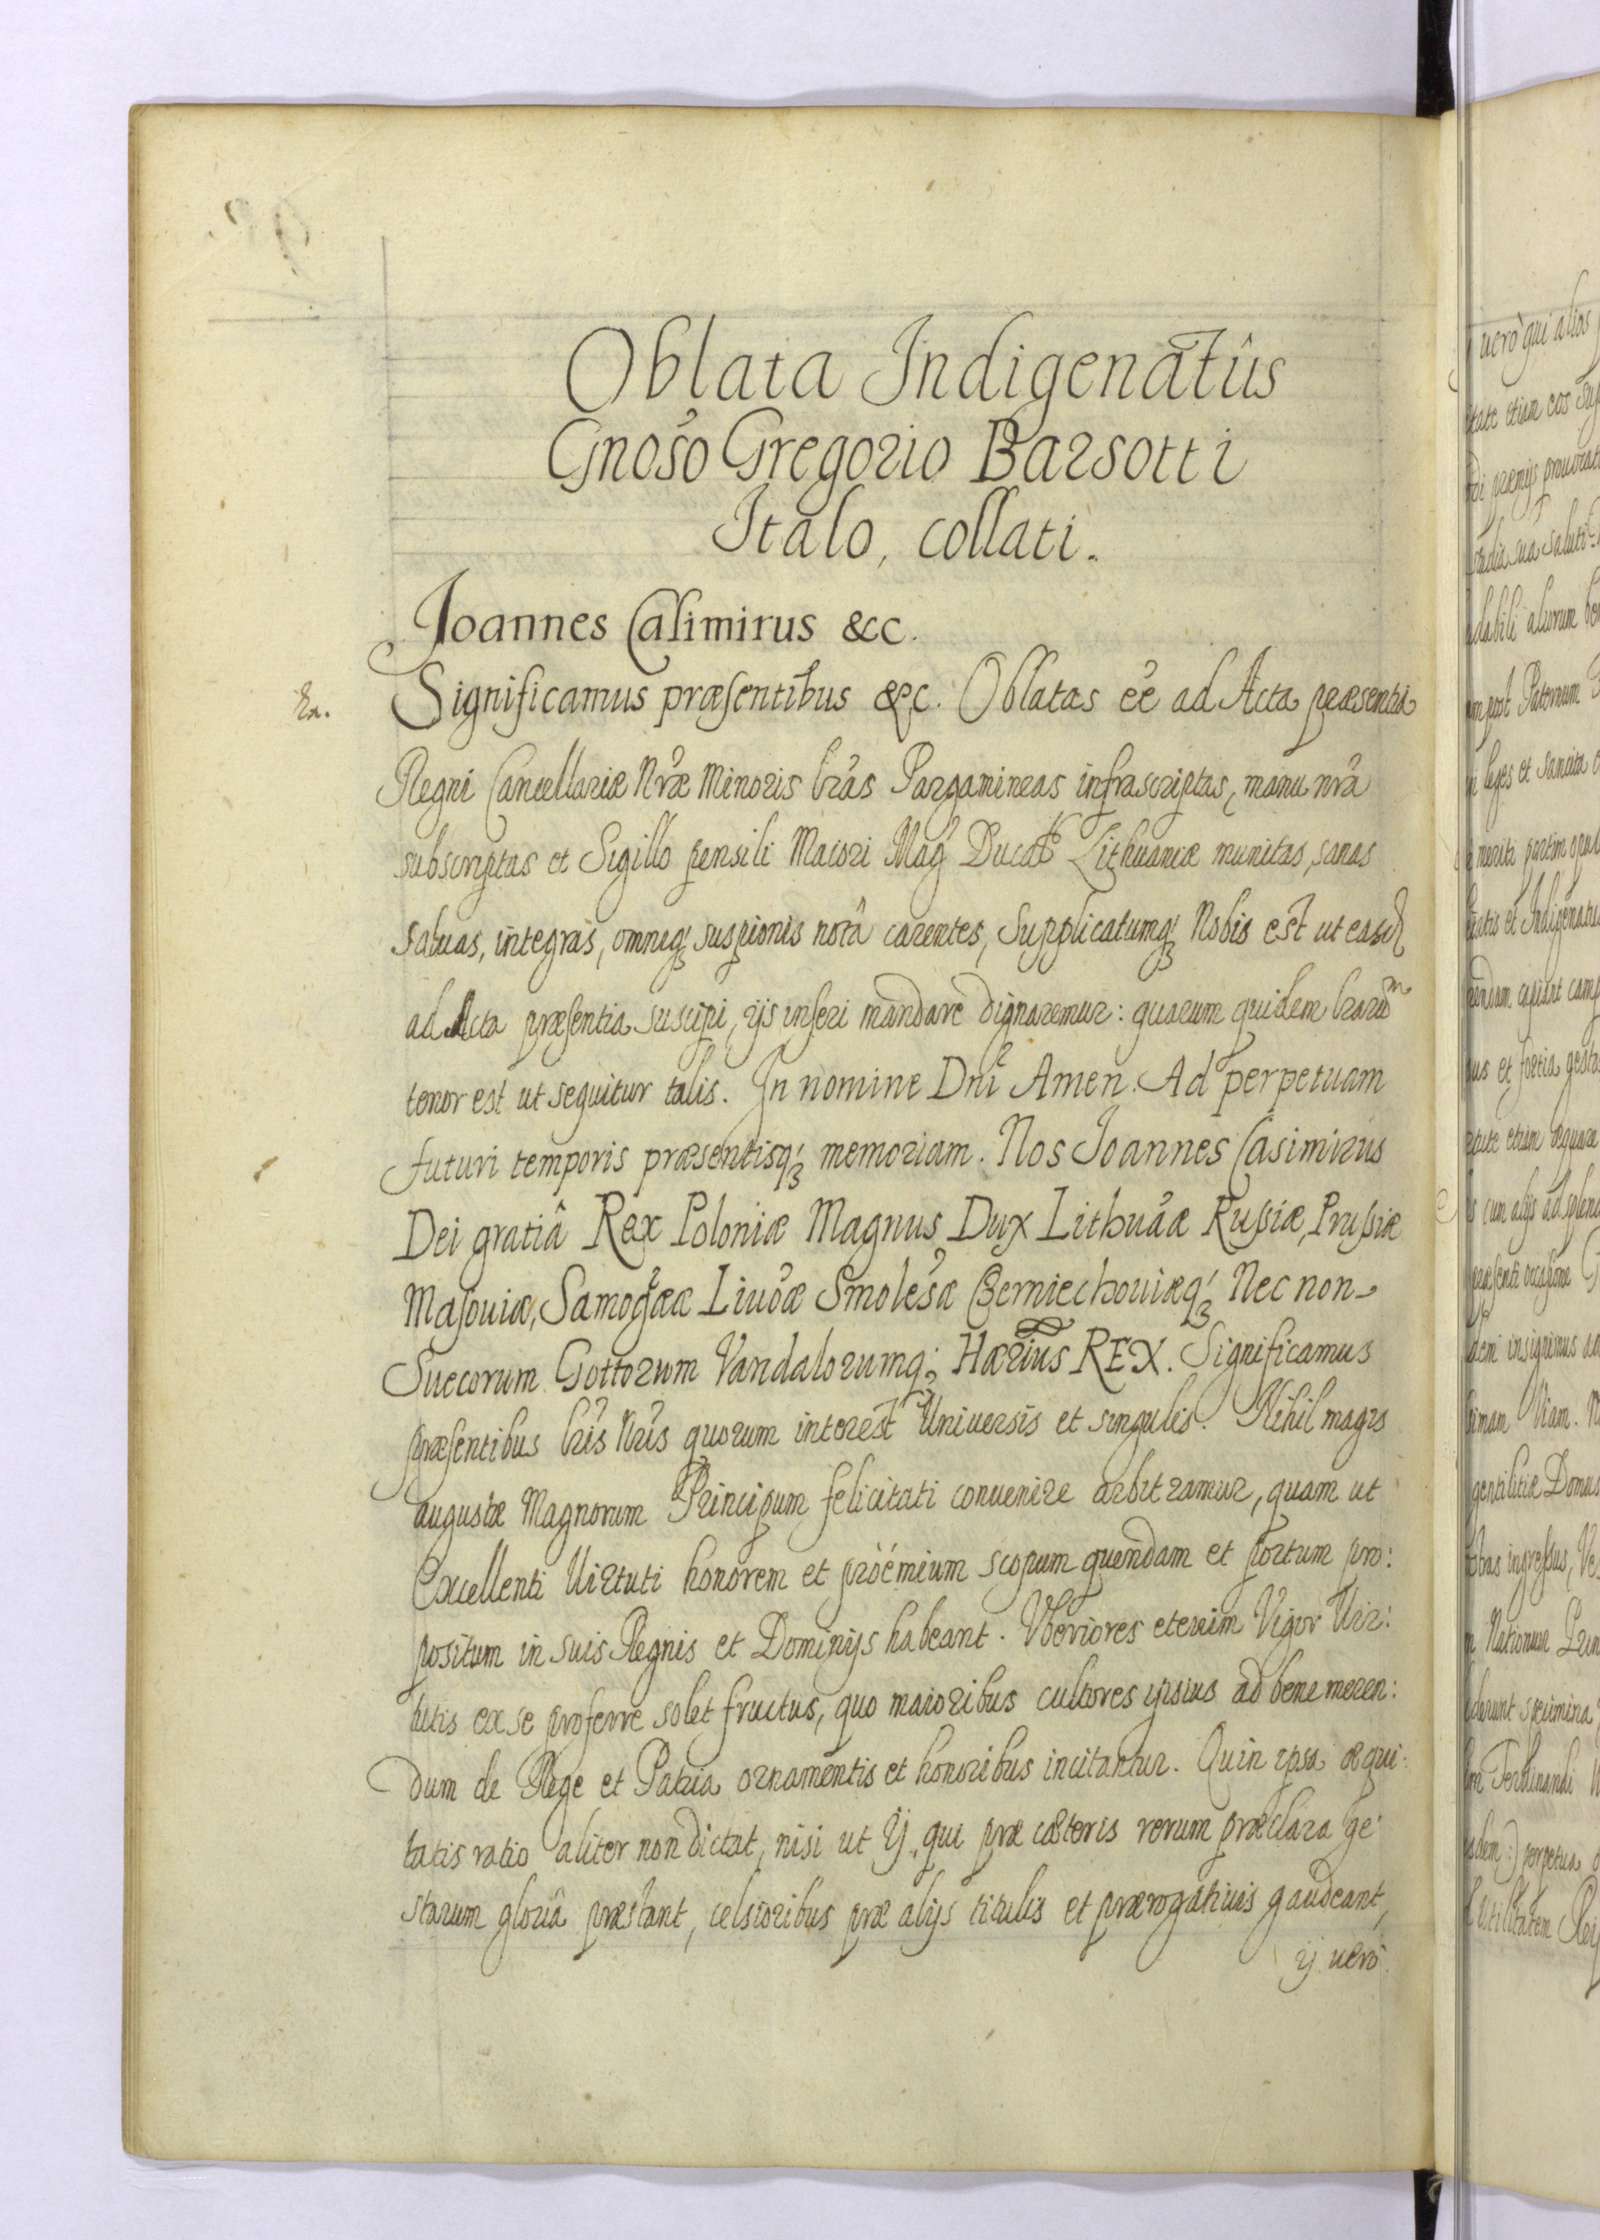 Oblata Indigenatûs
Gnoso Gregorio Barsotti
Italo, collati.
Joannes Casimirus &cc.
Ex. Significamus præsentibus &c. Oblatas eẽ ad Acta præsentia
Regni Cancellariæ Nræ Minoris lras Pargamineas infrascriptas, manu nrâ
subscriptas et Sigillo pensili Maiori Mag Ducatus Lithuaniæ munitas, sanas
saluas, integras, omniq; suspionis notâ carentes, Supplicatumq; Nobis est ut easd
ad Acta præsentia suscipi, ijs inseri mandare dignaremur: quarum quidem lrarum
tenor est ut sequitur talis. In nomine Dni Amen. Ad perpetuam
futuri temporis præsentisq; memoriam. Nos Joannes Casimirus
Dei gratiâ Rex Poloniæ Magnus Dux Lithuaæ Russiæ, Prussiæ
Masouiæ, Samogæ Liuoæ Smolesæ Czerniechouiæq; Nec non
Suecorum Gottorum Vandalorumq; Hærius REX. Significamus
præsentibus lris Nris quorum interest Uniuersis et singulis. Nihil magis
augustæ Magnorum Principum felicitati conuenire arbitramur, quam ut
Excellenti Uirtuti honorem et proémium scopum quendam et portum pro:
positum in suis Regnis et Dominijs habeant. Vberiores etenim Vigor Uir:
tutis ex se proferre solet fructus, quo maioribus cultores ipsius ad bene meren:
dum de Rege et Patria ornamentis et honoribus incitantur. Quin ipsa æqui:
tatis ratio aliter non dictat, nisi ut ij, qui præ cæteris rerum præclara ge:
starum gloriâ præstant, celsioribus præ alijs titulis et prærogatiuis gaudeant,
ij uerò